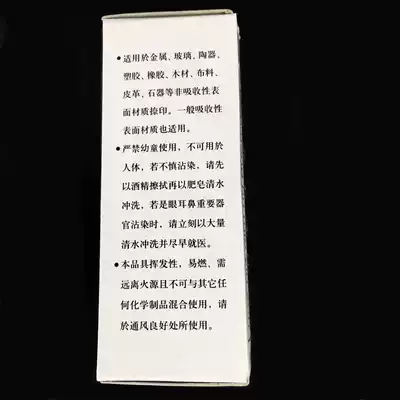 ●适用於金属、玻璃、陶器、
塑胶、橡胶、木材、布料、
皮革、石器等非吸收性表
面材质捺印。一般吸收性
表面材质也适用。
●严禁幼童使用，不可用於
人体，若不慎沾染，请先
以酒精擦拭再以肥皂清水
冲洗，若是眼耳鼻重要器
官沾染时，请立刻以大量
清水冲洗并尽早就医。
●本品具挥发性，易燃、需
远离火源且不可与其它任
何化学制品混合使用，请
於通风良好处所使用。